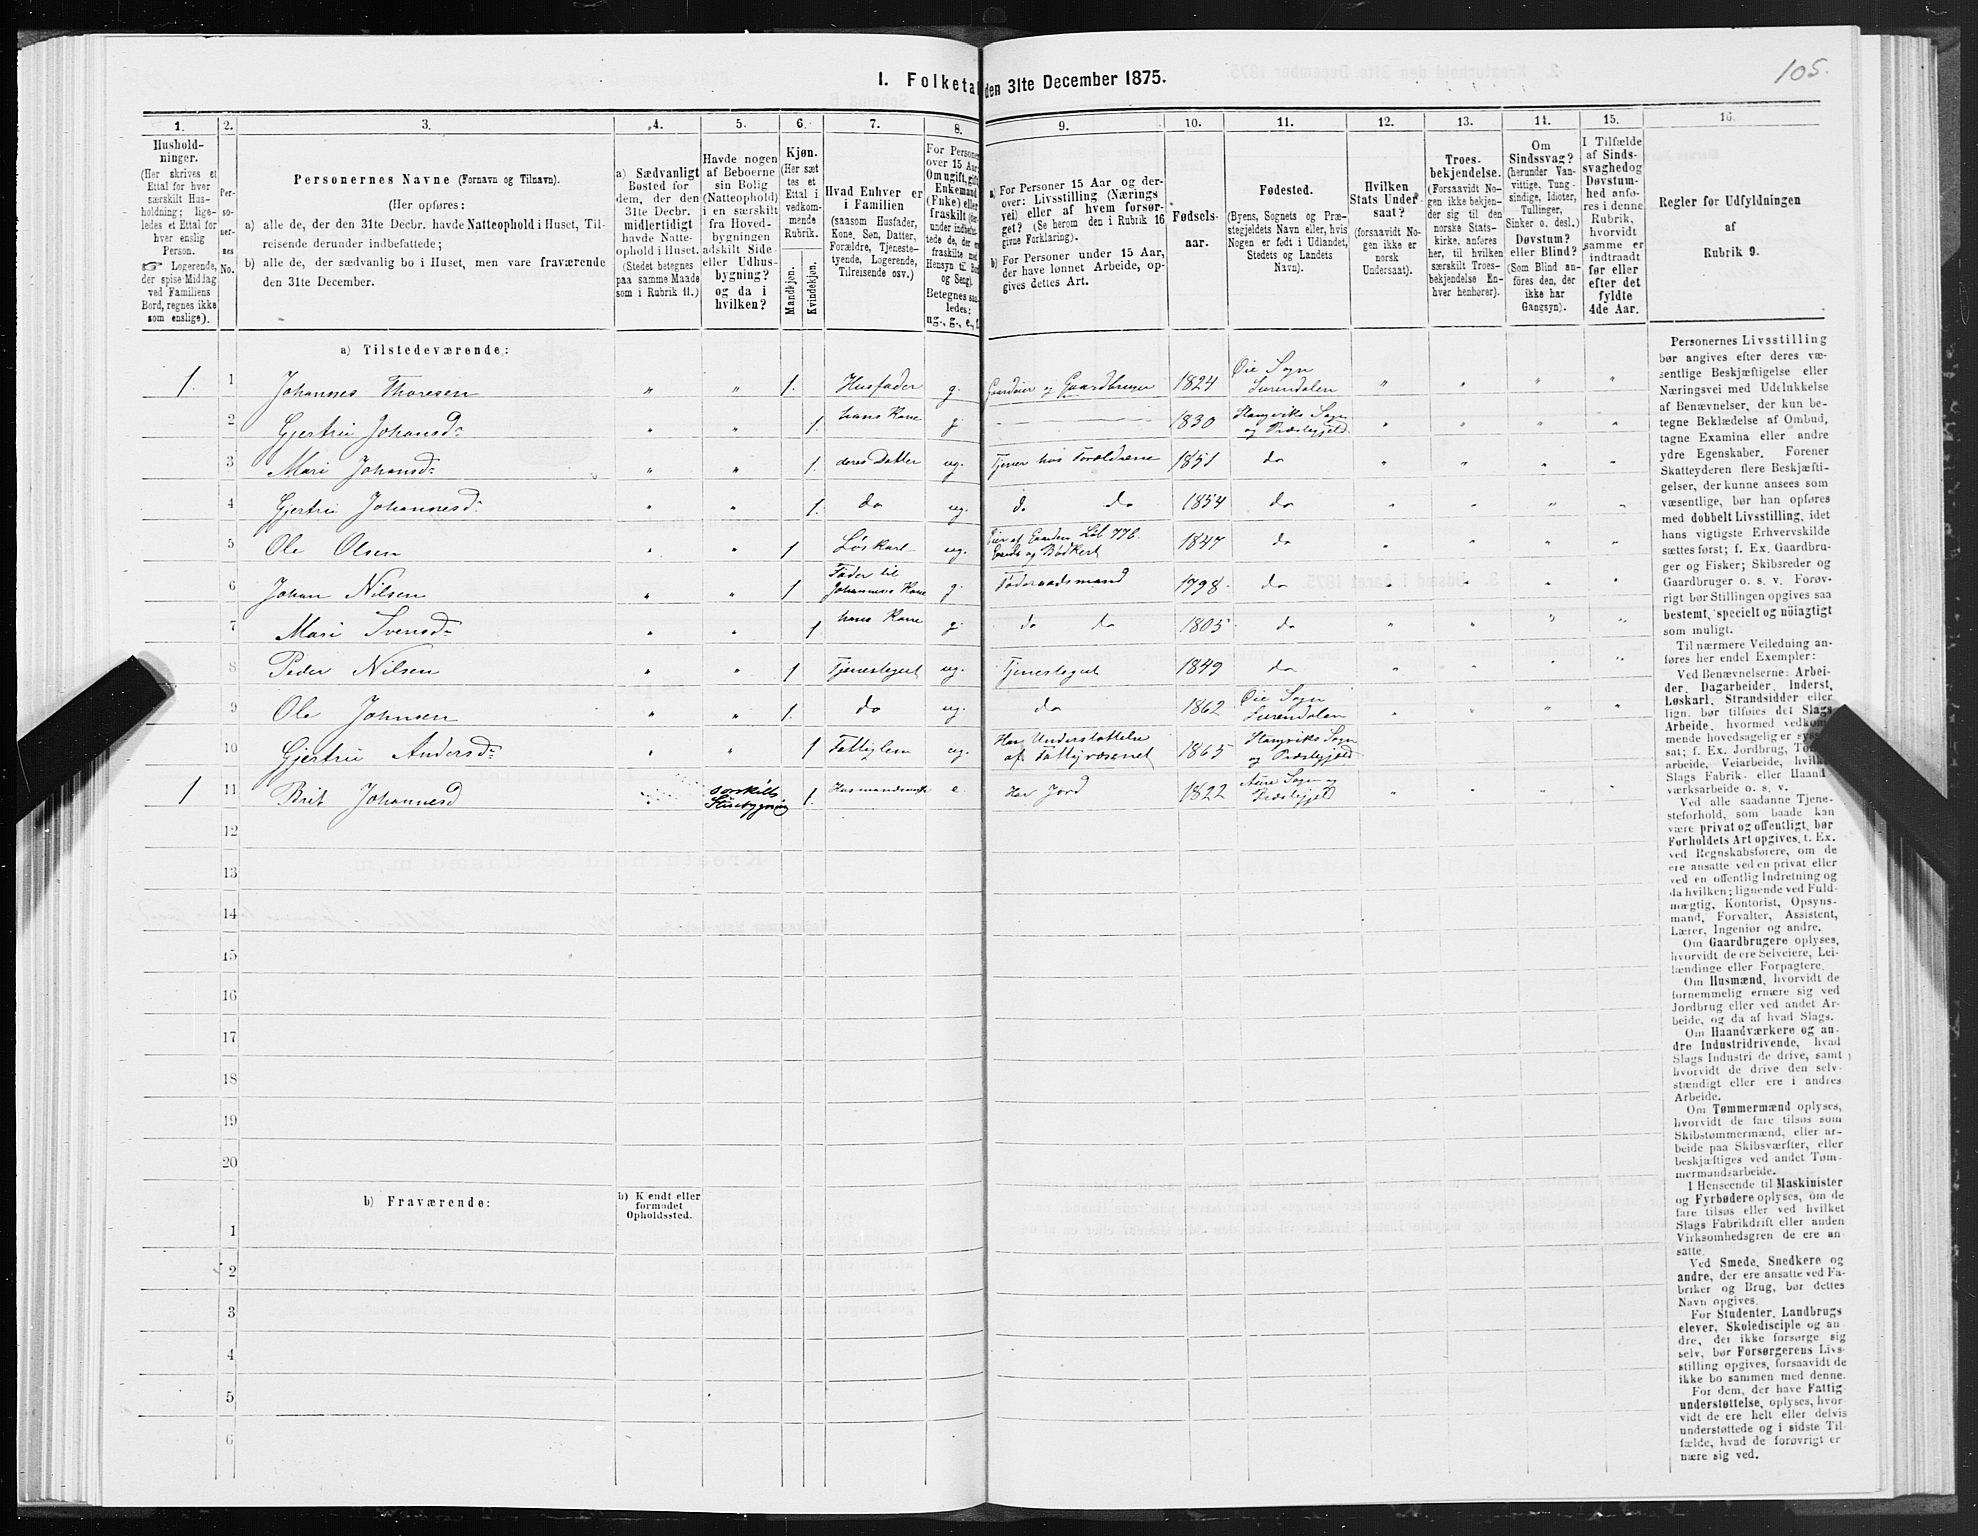 105.
I. Folketal den 31te December 1875.
1. 2. 3. 4. 5. 6. 7. 8. 9. 10. 11. 12. 13. 14. 15. 16.
Hushold-
ninger.
(Her skrives et
Ettal for hver
særskilt Hus-
holdning; lige-
ledes et Ettal for
hver enslig
Person.
☞ Logerende,
der spise Middag
ved Familiens
Bord, regnes ikke
som enslige).
Per-
so-
ner-
nes
No.
Personernes Navne (Fornavn og Tilnavn).
(Her opføres:
a) alle de, der den 31te Decbr. havde Natteophold i Huset, Til-
reisende derunder indbefattede;
b) alle de, der sædvanlig bo i Huset, men vare fraværende
den 31te December.
a) Sædvanligt
Bosted for
dem, der den
31te Decbr.
midlertidigt
havde Natte-
ophold i Huset.
(Stedet betegnes
paa samme Maade
som i Rubrik 11.)
Havde nogen
af Beboerne
sin Bolig
(Natteophold)
i en særskilt
fra Hoved-
bygningen
adskilt Side
eller Udhus-
bygning?
og da i
hvilken?
Kjøn.
(Her sæt
tes et
Ettal i
vedkom-
mende
Rubrik.
Mandkjøn.
Kvindekjøn.
Hvad Enhver er
i Familien
(saasom Husfader,
Kone, Søn, Datter,
Forældre, Tjeneste-
tyende, Logerende,
Tilreisende osv.)
For Personer
over 15 Aar:
Om ugift, gift,
Enkemand
(Enke) eller
fraskilt
Betegnes saa-
ledes:
ug., g., e., f.
a) For Personer 15 Aar og der-
over: Livsstilling (Nærings
vei) eller af hvem forsør-
get? (Se herom den i Rubrik 16
givne Forklaring).
b) For Personer under 15 Aar,
der have lønnet Arbeide, op-
gives dettes Art.
Fødsels-
aar.
Fødested.
(Byens, Sognets og Præ-
stegjeldets Navn eller, hvis
Nogen er født i Udlandet,
Stedets og Landets
Navn).
Hvilken
Stats Under
saat?
(forsaavidt No-
gen ikke er
norsk
Undersaat).
Troes-
bekjendelse.
(Forsaavidt No-
gen ikke bekjen-
der sig til den
norske Stats-
kirke, anføres
her, til hvilken
særskilt Troes-
bekjendelse En-
hver henhører).
Om
Sindssvag?
(herunder Van-
vittige, Tung-
sindige, Idioter,
Tullinger,
Sinker o. desl.)
Døvstum?
eller Blind?
(Som Blind an-
føres den, der
ikke har
Gangsyn).
I Tilfælde
af Sinds-
svaghed og
Døvstum-
hed anfø-
res i denne
Rubrik,
hvorvidt
samme er
indtraadt
før eller
efter det
fyldte
4de Aar.
Regler for Udfyldningen
af
Rubrik 9.
a) Tilstedeværende:
1. 1 Johannes Thoresen " " 1. Husfader g. Gaardeier og Gaardbruger 1824 Øie Sogn Surendalen " " " "
2 Gjertru Johansd. " " 1 hans Kone g. 1830 Stangviks Sogn og Præstegjeld. " " " "
3 Mari Johansd. " " 1. deres Datter ug. Tjener hos Forældrene 1851 do " " " "
4 Gjertru Johannesd. " " 1. do ug. d. do 1854 do " " " "
5 Ole Olsen " " 1 Løskarl ug. Eier af Gaarden Løb 776. og Bødkert 1847 do " " " "
6 Johan Nilsen " " 1 Fader til Johannes's Kone g. Føderaadsmand 1798 do " "
7 Mari Svensd. " " 1 hans Kone g. do do 1805 do " " " "
8 Peder Nilsen " " 1 Tjenestegut ug. Tjenestegut 1849 do " " " "
9 Ole Johnsen " " 1. do ug. do 1862 Øie Sogn Surendalen " " " "
10 Gjertru Andersd. " " 1 Fattiglem ug. Har Understøttelse af Fattigvæsenet 1865 Stangviks Sogn og Præstegjeld
1 11 Brit Johannesd " særskilt Sidebygning 1. e Har Jord 1822 Aure Sogn og Præstegjeld " " " "
12
13
14
15
16
17
18
19
20
b) Fraværende:
b) Kjendt eller
formodet
Opholdssted.
1
2
3
4
5
6
Personernes Livsstilling
bør angives efter deres væ-
sentlige Beskjæftigelse eller
Næringsvei med Udelukkelse
af Benævnelser, der kun be-
tegne Beklædelse af Ombud,
tagne Examina eller andre
ydre Egenskaber. Forener
Skatteyderen flere Beskjæfti-
gelser, der kunne ansees som
væsentlige, bør han opføres
med dobbelt Livsstilling, idet
hans vigtigste Erhvervskilde
sættes først; f. Ex. Gaardbru-
ger og Fisker; Skibsreder og
Gaardbruger o. s. v. Forøv-
rigt bør Stillingen opgives saa
bestemt, specielt og nöiagtigt
som muligt.
Til nærmere Veiledning an-
føres her endel Exempler:
Ved Benævnelserne: Arbei-
der, Dagarbeider, Inderst,
Løskarl, Strandsidder eller
lign. bør tilføies det Slags
Arbeide, hvormed vedkom-
mende hovedsagelig er syssel-
sat; f. Ex. Jordbrug, Tømmer-
arbeide, Veiarbeide, hvilket
Slags Fabrik- eller Haand
værksarbeide o. s. v.
Ved alle saadanne Tjene-
steforhold, som baade kan
være privat og offentligt, bør
Forholdets Art opgives, t. Ex.
ved Regnskabsførere, om de
ere ansatte ved en privat eller
ved en offentlig Indretning og
da hvilken; lignende ved Fuld-
mægtig, Kontorist, Opsyns-
mand, Forvalter, Assistent,
Lærer, Ingeniør og andre.
Om Gaardbrugere oplyses,
hvorvidt de ere Selveiere, Lei-
lændinge eller Forpagtere.
Om Husmænd, hvorvidt de
fornemmelig ernære sig ved
Jordbrug eller ved andet Ar-
beide, og da af hvad Slags.
Om Haandværkere og an-
dre Industridrivende, hvad
Slags Industri de drive, samt
hvorvidt de drive den selv-
stændigt eller ere i andres
Arbeide.
Om Tømmermænd oplyses,
hvorvidt de fare tilsøs som
Skibstømmermænd, eller ar-
beide paa Skibsværfter, eller
beskjæftiges ved andet Tøm-
mermandsarbeide.
I Henseende til Maskinister
og Fyrbødere oplyses, om de
fare tilsøs eller ved hvilket
Slags Fabrikdrift eller anden
Virksomhedsgren de ere an-
satte.
Ved Smede, Snedkere og
andre, der ere ansatte ved Fa-
briker og Brug, bør dettes
Navn opgives.
For Studenter, Landbrugs
elever, Skoledisciple og an
dre, der ikke forsørge sig
selv, bør Forsørgerens Livs-
stilling opgives, forsaavidt de
ikke bo sammen med denne.
For dem, der have Fattig-
understøttelse, oplyses, hvor-
vidt de ere helt eller delvis
understøttede og i sidste Til-
fælde, hvad de forøvrigt er
nære sig ved.